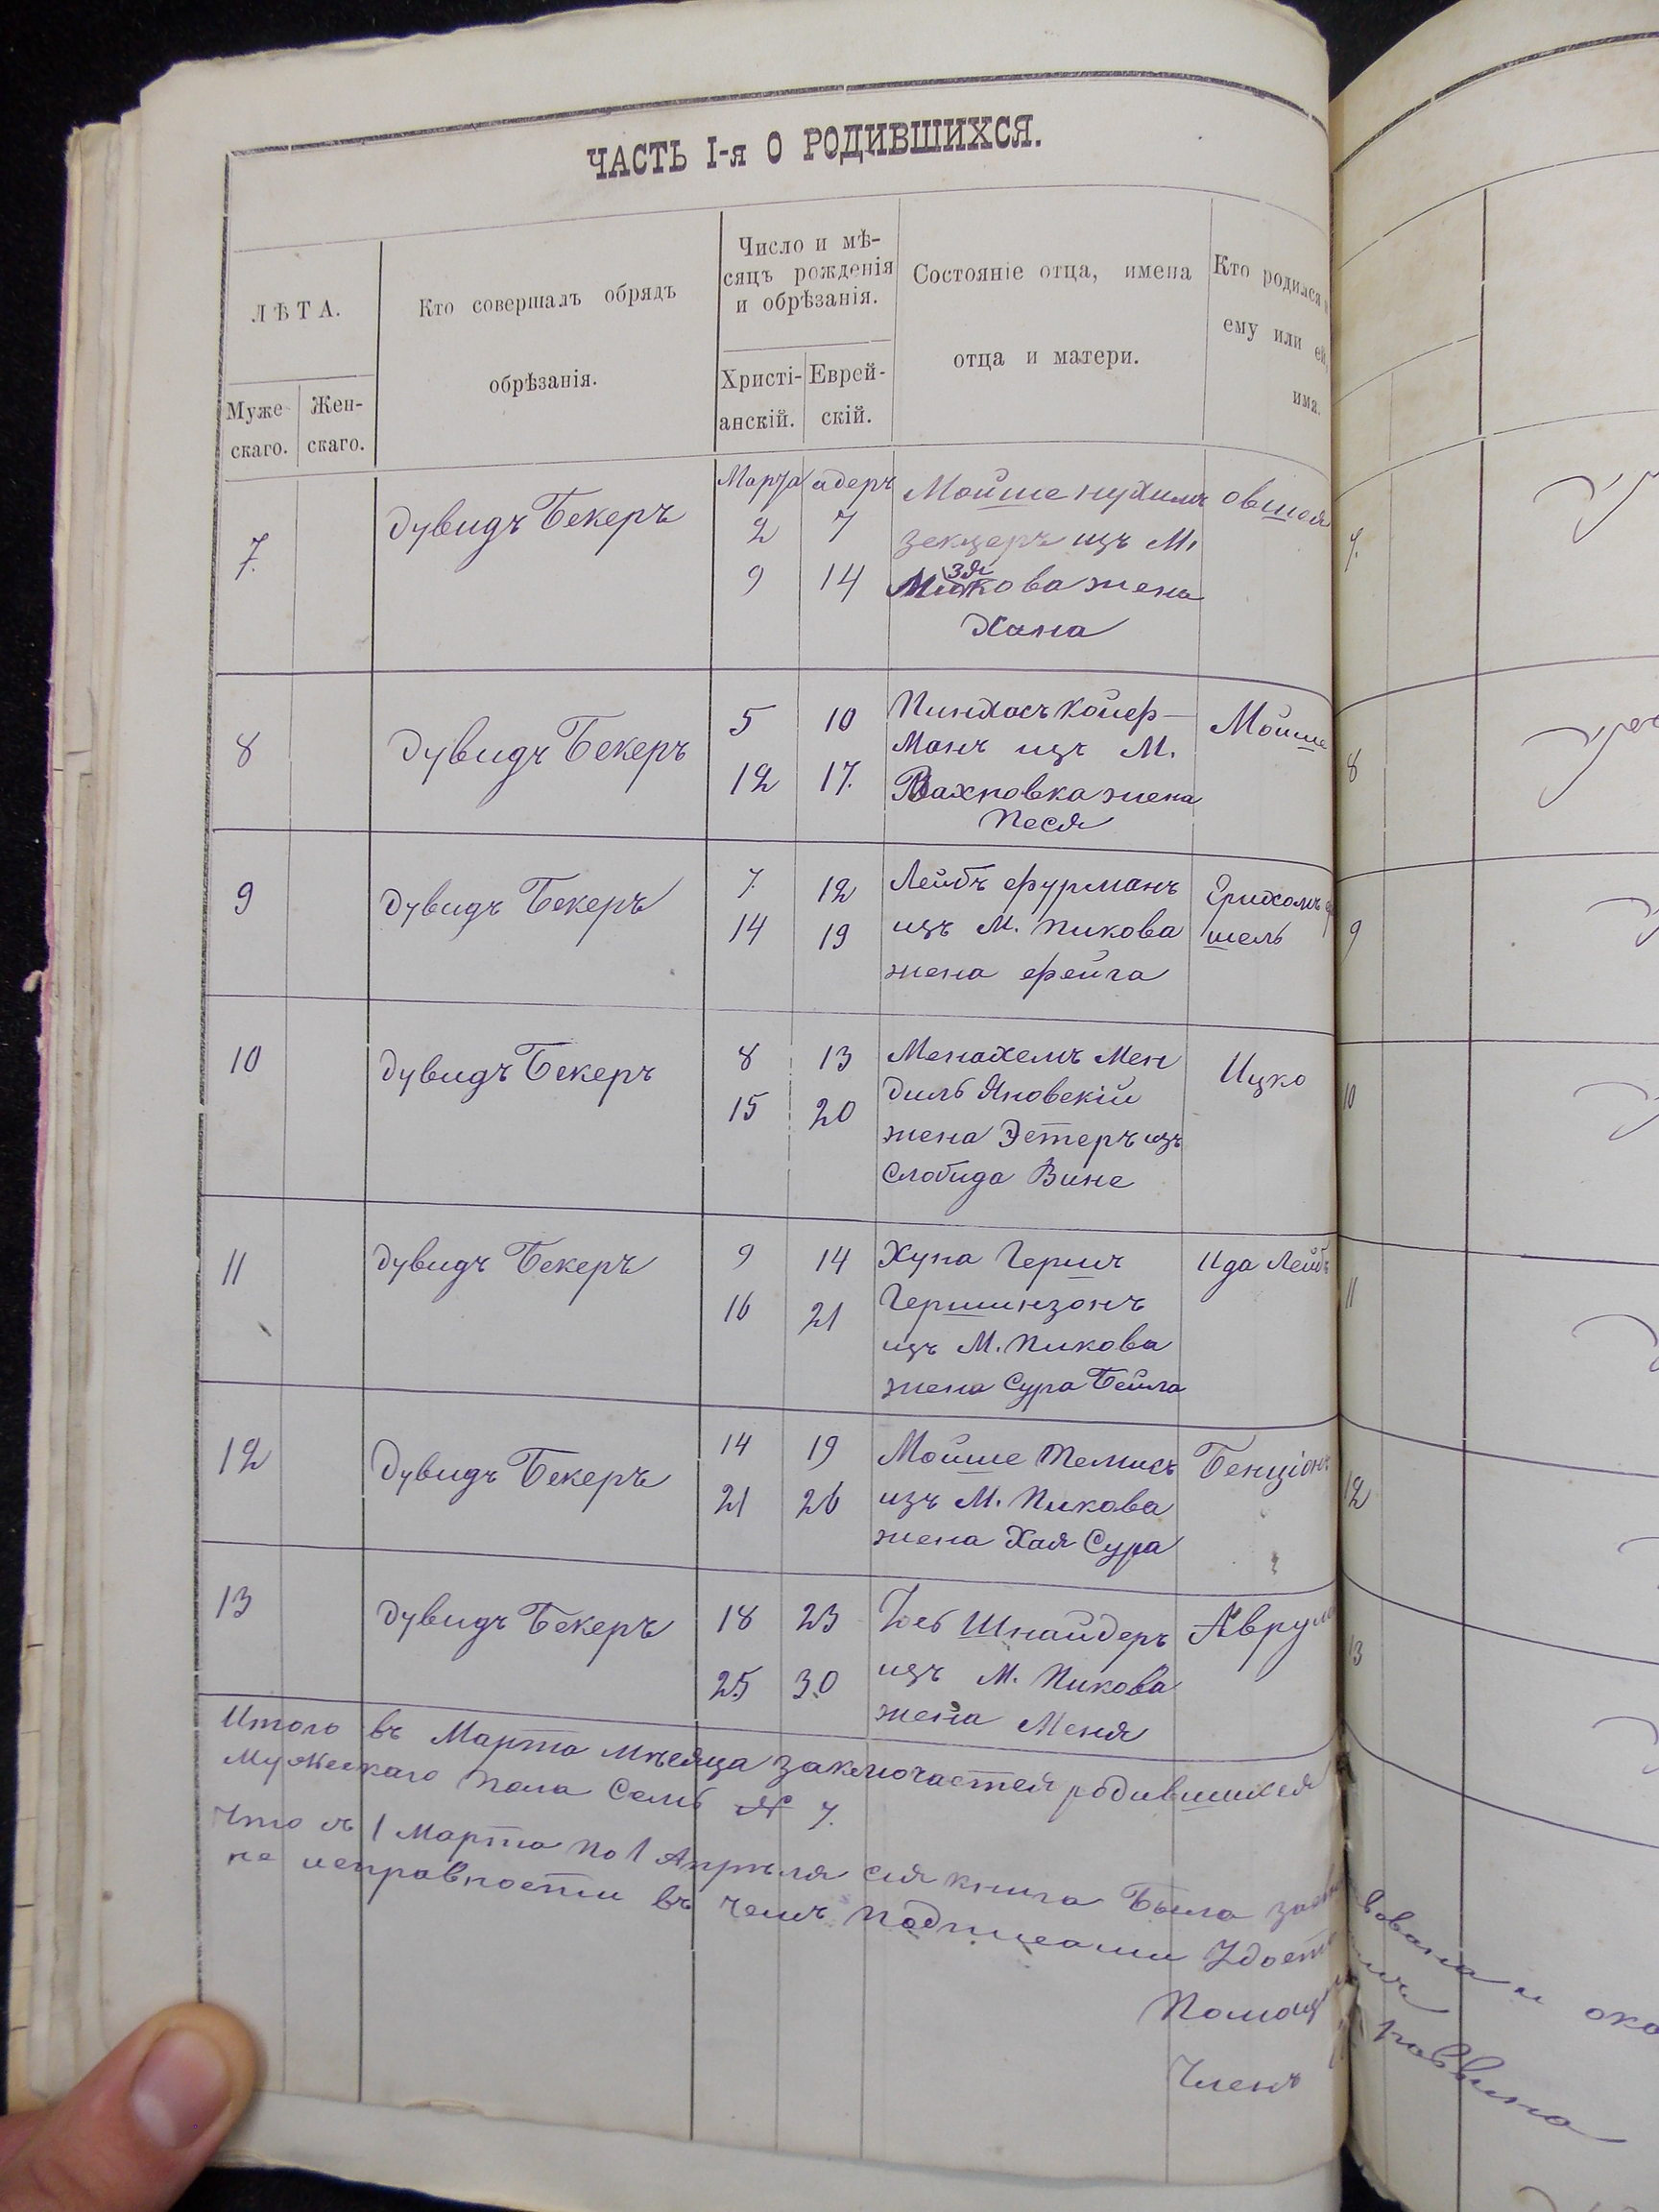 ЧАСТЬ I-я О РОДИВШИХСЯ.
ЛѢТА.
Муже-
скаго.
Жен-
скаго.
Кто совершалъ обрядъ
обрѣзанія.
Число и мѣ-
сяцъ рожденія
и обрѣзанія.
Христі-
анскій.
Еврей-
скій.
Состояніе отца, имена
отца и матери.
Кто родился
ему или ей
има.
7.
Дувидъ Бекеръ
Марта адеръ
2 7
9 14
Мойше нухимъ
зекцеръ изъ М.
жена
Хана
овшея
7.
8
Дувидъ Бекеръ
5 10
12 17.
Пинхосъ Койер-
Манъ изъ М.
Вахновка жена
Песя
Мойше
8
9
Дувидъ Бекеръ
7. 12
14 19
Лейбъ фурманъ
изъ М. Пикова
жена фейга
Ерихомъ
шель
9
10
Дувидъ Бекеръ
8 13
15 20
Менахемъ Мен
диль Яновскій
жена Эстеръ изъ
Слобида Вине
Ицко
10
11
Дувидъ Бекеръ
9 14
16 21
Хуна Гершъ
Гершинзонъ
изъ М. Пикова
жена Сура Бейла
Ида Лейбъ
11
12
Дувидъ Бекеръ
14 19
21 26
Мойше Темисъ
изъ М. Пикова
жена Хая Сура
Бенціонъ
12
13
Дувидъ Бекеръ
18 23
25 30
Шнайдеръ
изъ М. Пикова
жена Меня
Аврум
13
Итого въ Марта мѣсяца заключается родившихся
Мужескаго пола Семь № 7.
Что съ 1 Марта по 1 Апрѣля сія книга Была
не исправности въ чемъ подписами
раввина
Членъ